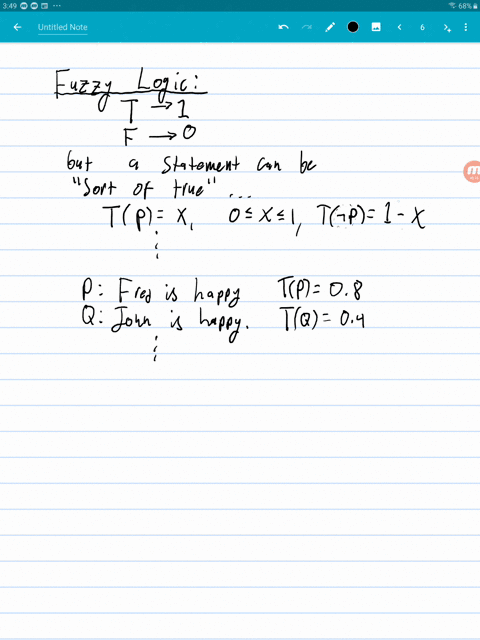 3:49 68%
Untitled Note 6
Fuzzy Logic:
T → 1
F → 0
but a statement can be
"Sort of true" ...
T(P) = x, 0 ≤ x ≤ 1, T(¬P) = 1 - x
P: Fred is happy T(P) = 0.8
Q: John is happy. T(Q) = 0.4